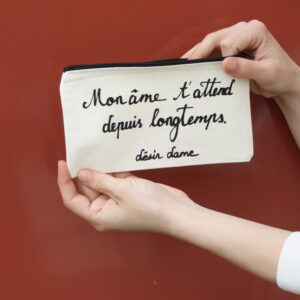 Mon âme t'attend
depuis longtemps.
désir dame